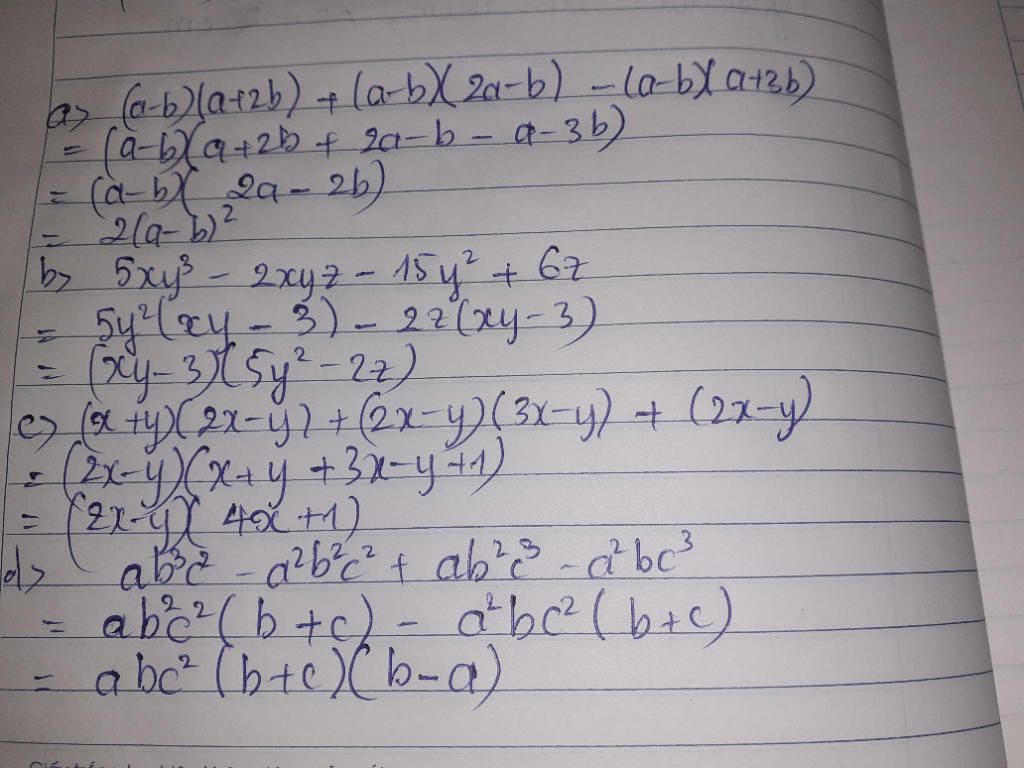 a> (a-b)(a+2b) + (a-b)(2a-b) - (a-b)(a+3b)
= (a-b)(a+2b + 2a-b - a-3b)
= (a-b)( 2a - 2b)
= 2(a-b)²
b> 5xy³ - 2xyz - 15y² + 6z
= 5y²(xy - 3) - 2z(xy-3)
= (xy-3)(5y² - 2z)
c> (x+y)(2x-y) + (2x-y)(3x-y) + (2x-y)
= (2x-y)(x+y + 3x-y+1)
= (2x-y)( 4x +1)
d> ab³c² - a²b²c² + ab²c³ - a²bc³
= ab²c²( b+c) - a²bc²( b+c)
= abc² (b+c)( b-a)